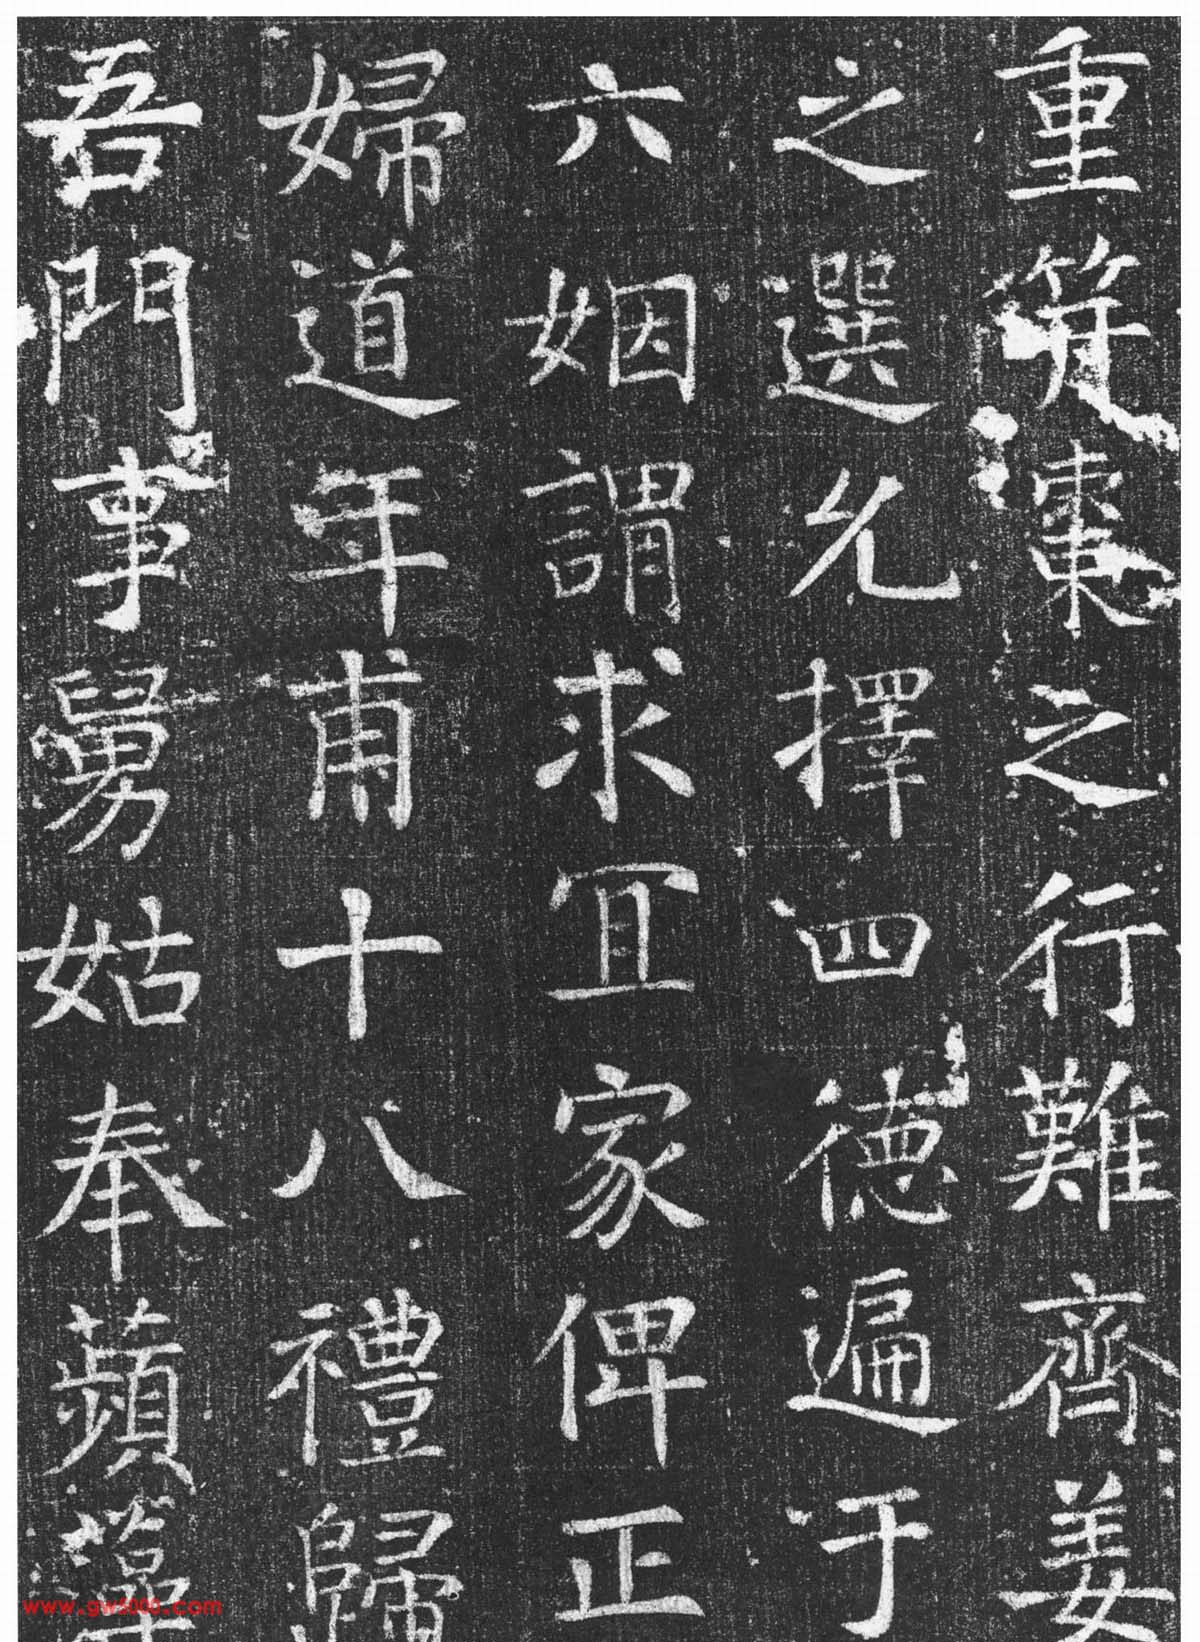 重笄棗之行難齊姜
之選允擇四德遍于
六姻謂求冝家俾正
婦道年甫十八禮歸
吾門事舅姑奉蘋藻
www.gw5000.com